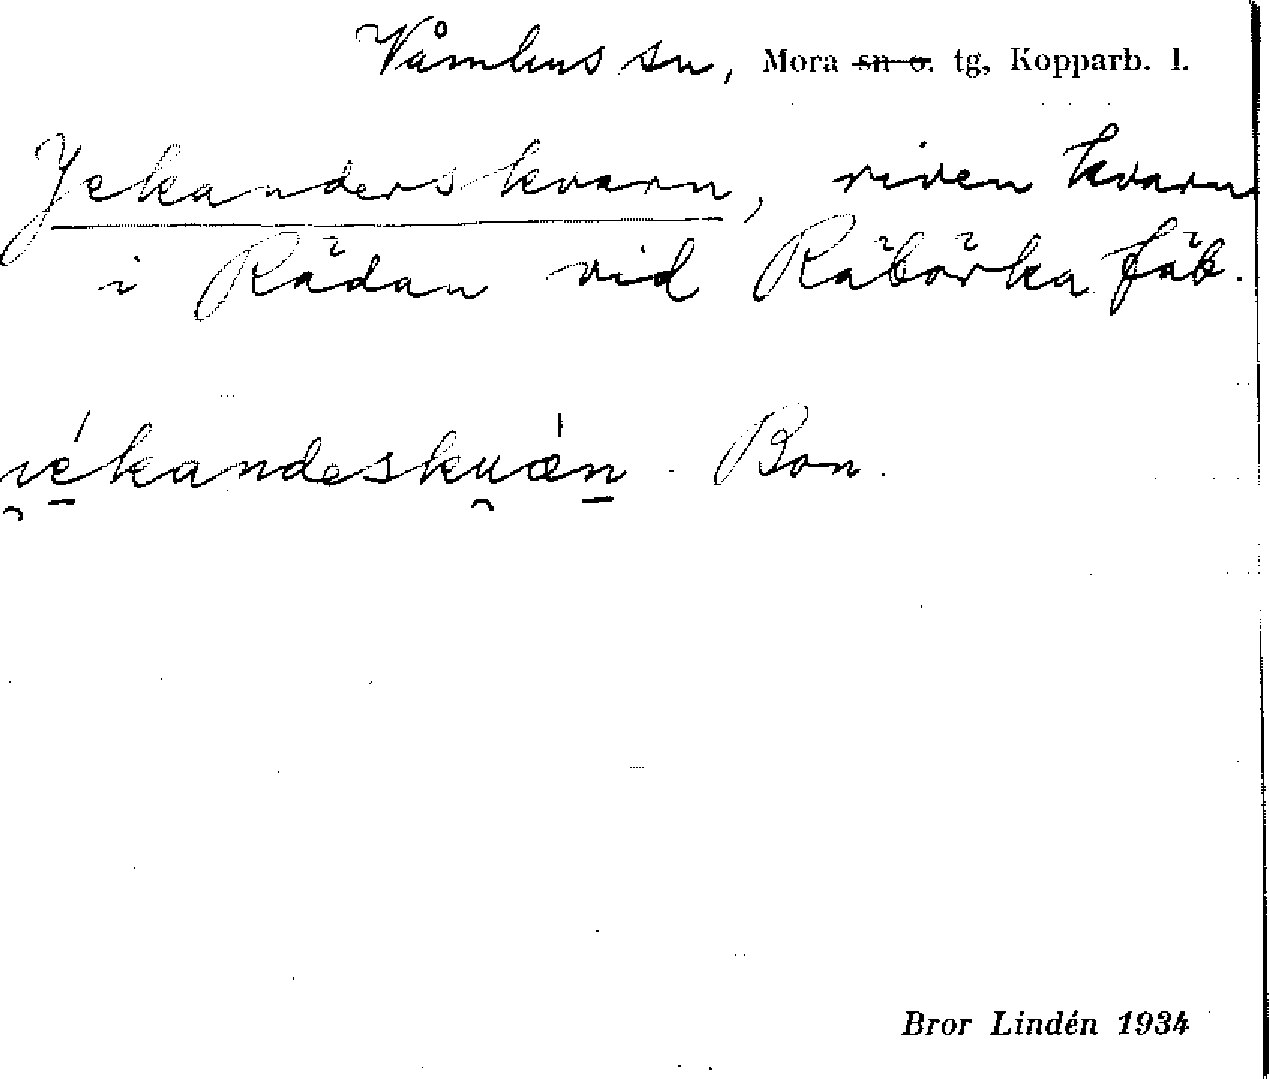 Våmhus sn, Mora sn o. tg, Kopparb. l.
Jekanderskvarn, riven kvarn
i Rädan vid Räbörka fäb.
Bon.
Bror Lindén 1934